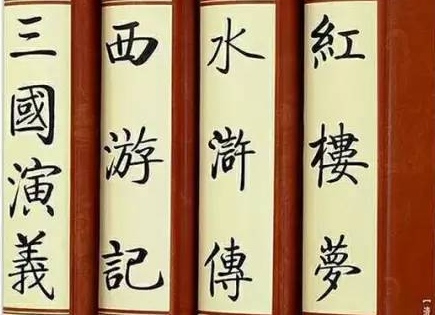 三國演義
西游記
水滸傳
紅樓夢